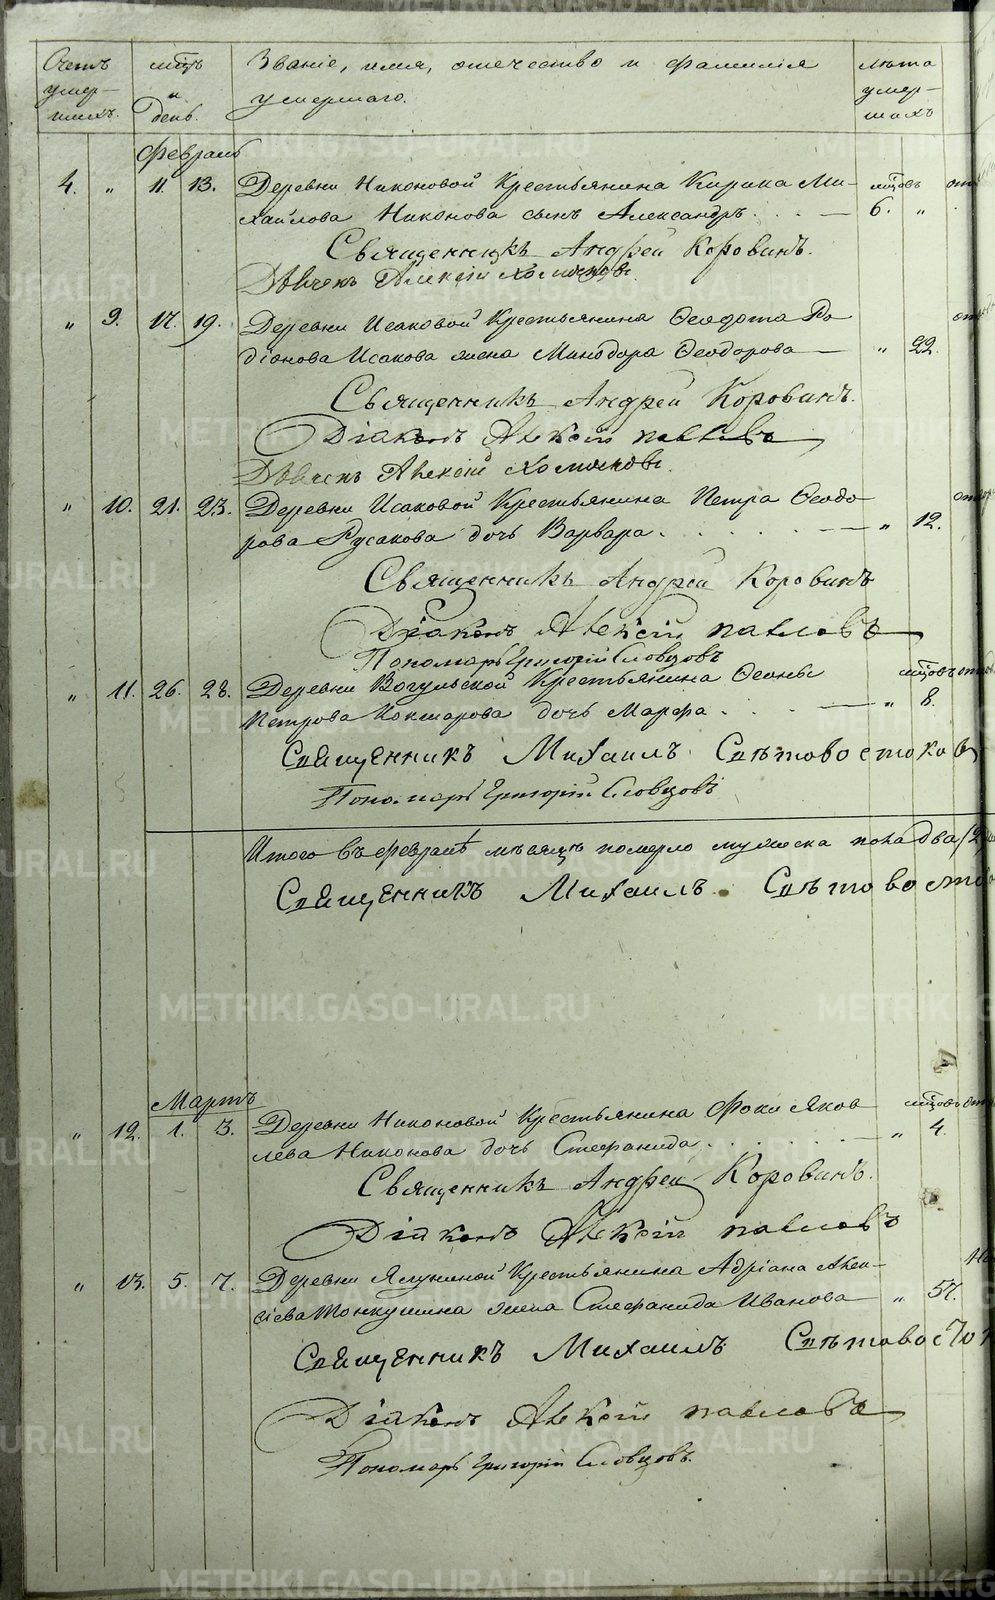 Счетъ умер-шихъ.
мѣсяцъ и день.
Званіе, имя, отечество и фамилія умершаго.
лѣта умер-шихъ
Февраль
4. " 11. 13. Деревни Никоновой Крестьянина Кирика Ми-
хайлова Никонова сынъ Александръ. . . — мѣсяцовъ 6. "
Священникъ Андрей Коровинъ.
Дьячекъ Алексій Хомяковъ.
" 9. 17. 19. Деревни Исаковой Крестьянина Ѳеодота Ро-
діонова Исакова жена Минодора Ѳеодорова — " 22.
Священникъ Андрей Коровинъ.
Діаконъ Алексій Павловъ
Дьячекъ Алексій Хомяковъ.
" 10. 21. 23. Деревни Исаковой Крестьянина Петра Ѳеодо-
рова Русакова дочь Варвара. . . . . — " 12.
Священникъ Андрей Коровинъ
Діаконъ Алексій Павловъ
Пономарь Григорій Словцовъ
" 11. 26. 28. Деревни Вогульской Крестьянина
Петрова Кокшарова дочь Марфа. . . — мѣсяцовъ " 8.
Священникъ Михаилъ Свѣтовостоковъ
Пономарь Григорій Словцовъ
Итого въ февралѣ мѣсяцѣ померло мужеска пола два (2
Священникъ Михаилъ Свѣтовосто
Мартъ
" 12. 1. 3. Деревни Никоновой Крестьянина Фоки Яков
лева Никонова дочь Стефанида. . . . . — мѣсяцовъ " 4.
Священникъ Андрей Коровинъ.
Діаконъ Алексій Павловъ
" 13. 5. 7. Деревни Ялуниной Крестьянина Адріана Алек-
сіева Тонкушина жена Стефанида Иванова — " 57.
Священникъ Михаилъ Свѣтовосток
Діаконъ Алексій Павловъ
Пономарь Григорій Словцовъ.
METRIKI.GASO-URAL.RU